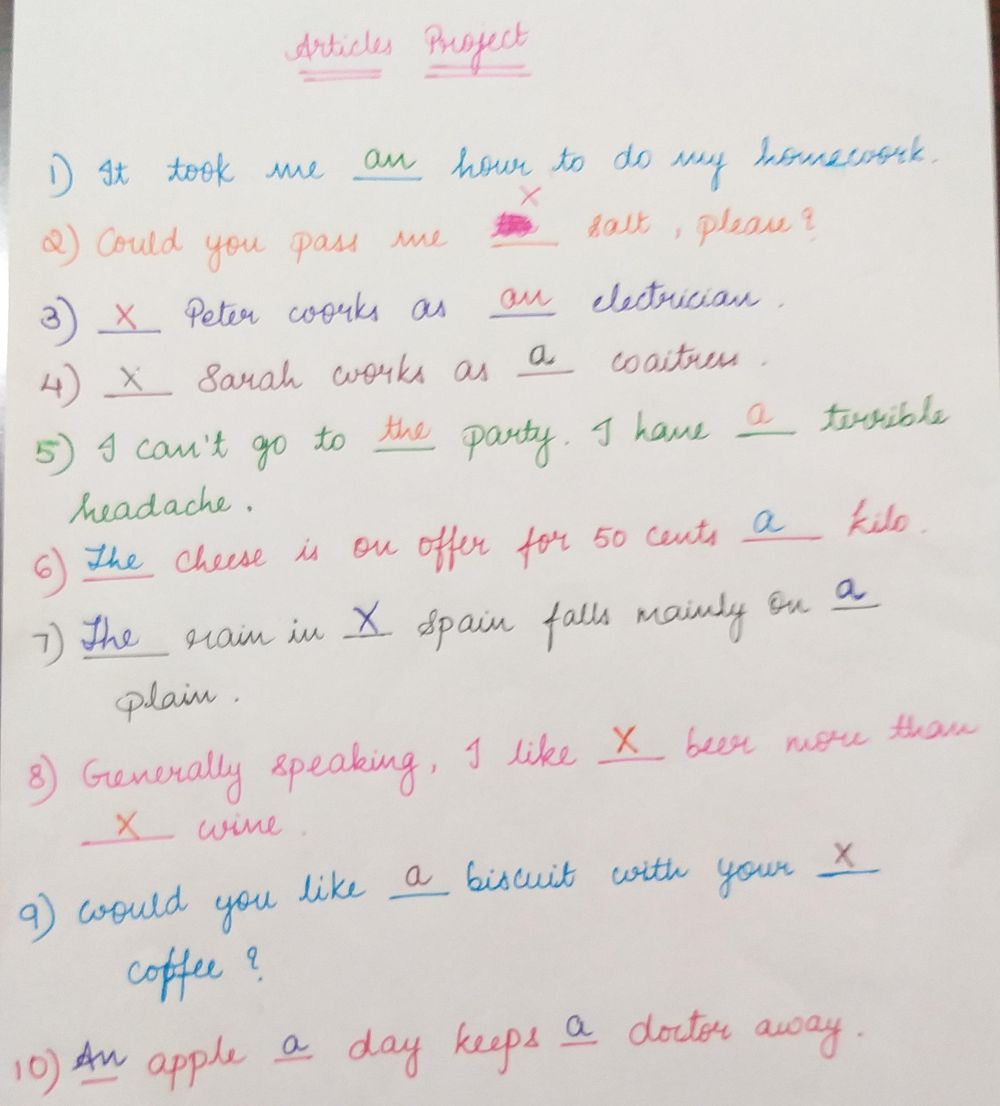 Articles Project
1) It took me an hour to do my homework.
2) Could you pass me x salt, please?
3) x Peter works as an electrician.
4) x Sarah works as a waitress.
5) I can't go to the party. I have a terrible
headache.
6) The cheese is on offer for 50 cents a kilo.
7) The rain in X Spain falls mainly on a
plain.
8) Generally speaking, I like X beer more than
x wine.
9) would you like a biscuit with your x
coffee?
10) An apple a day keeps a doctor away.